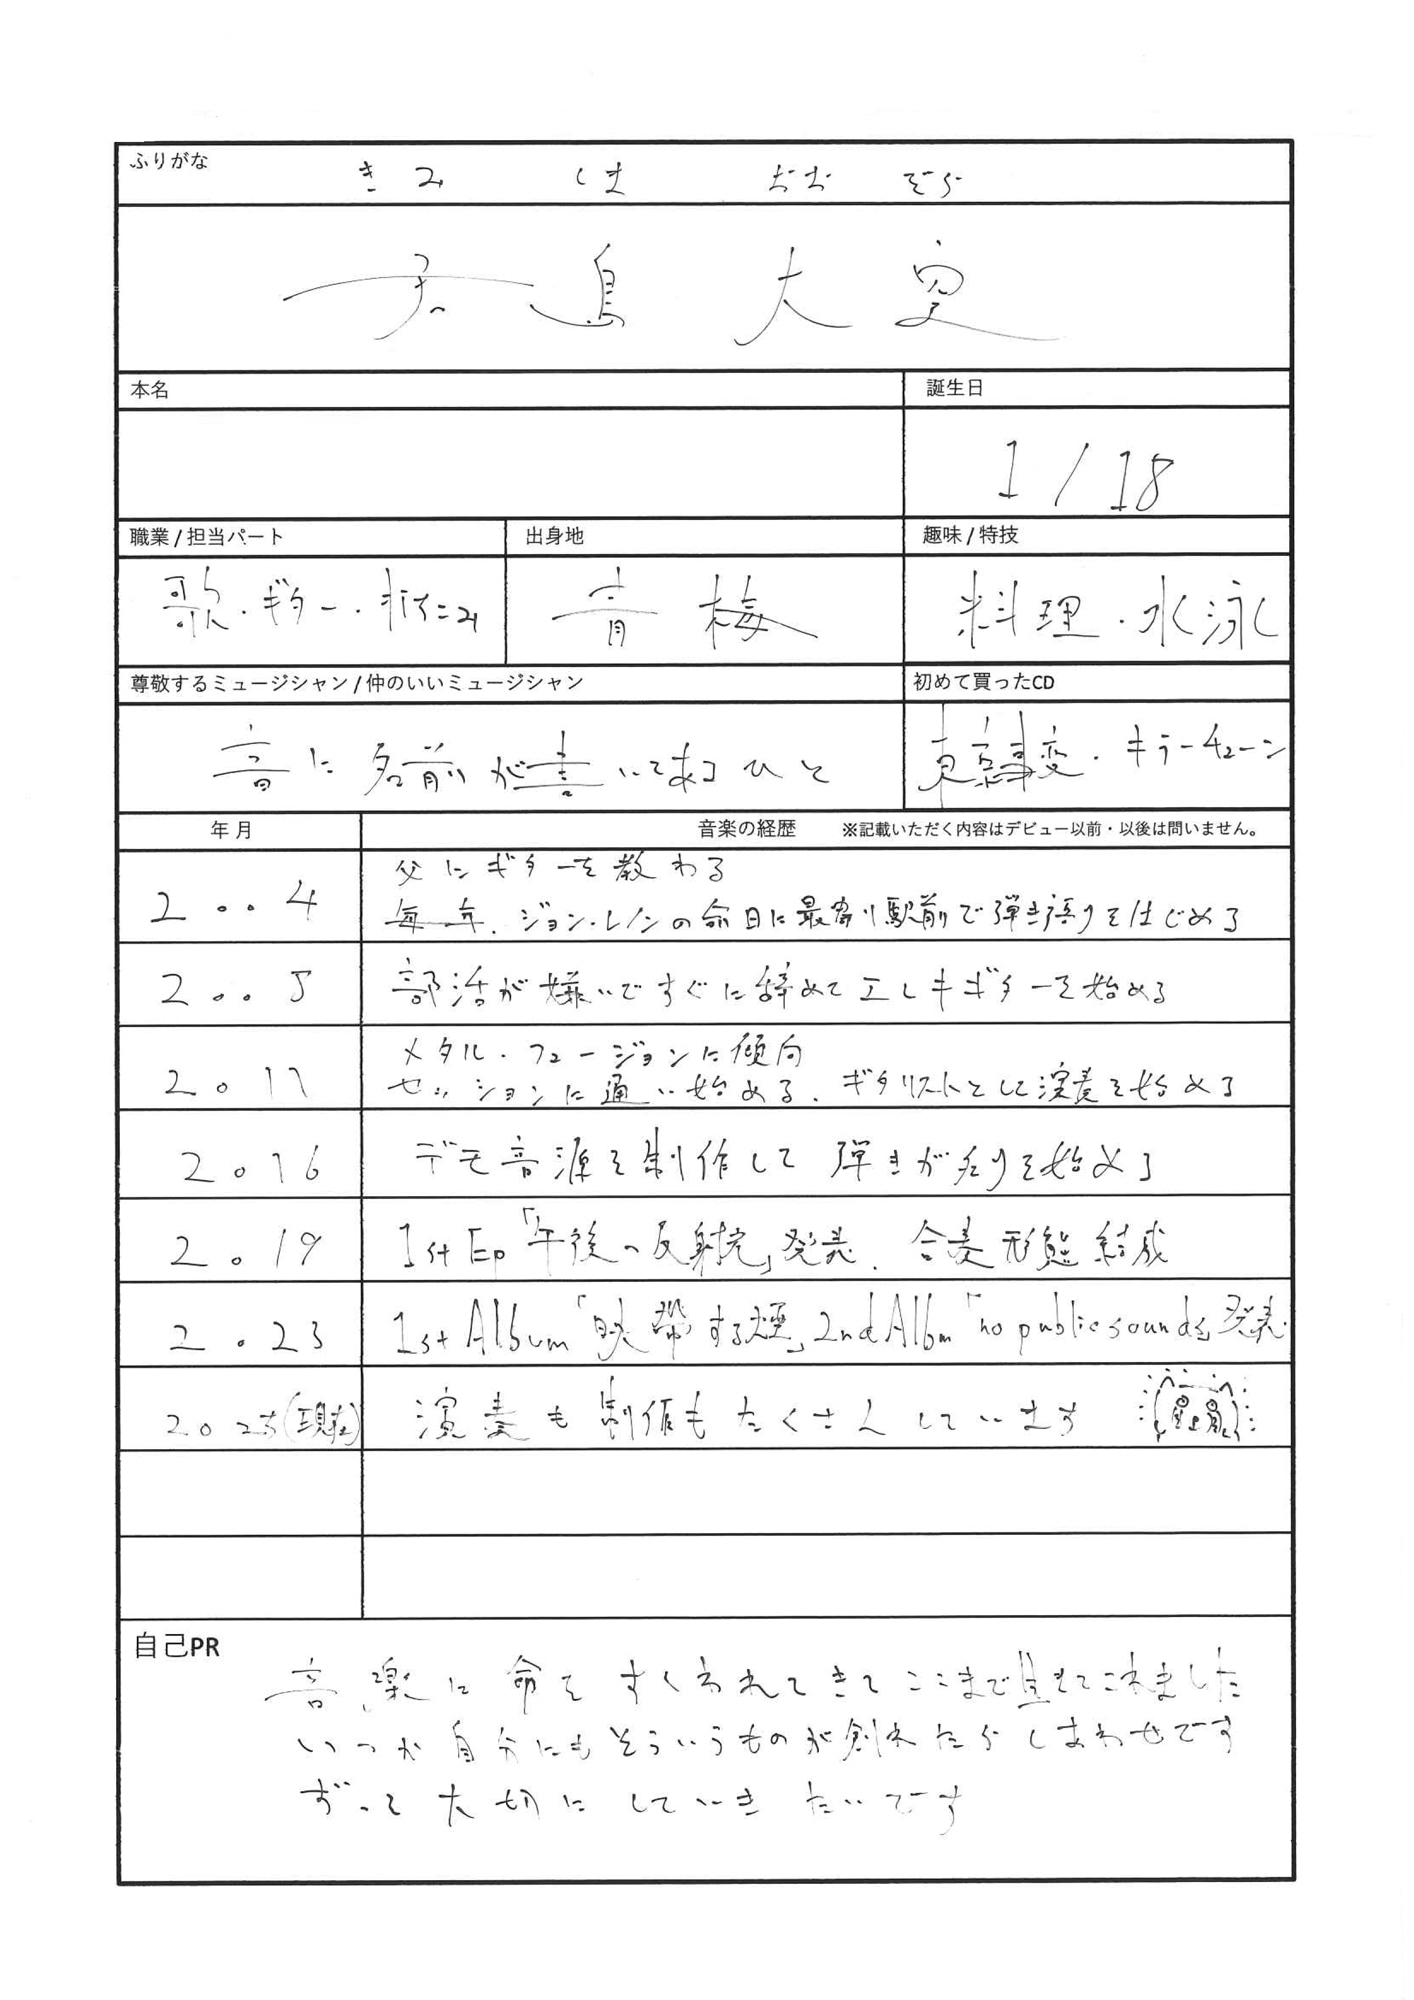 ふりがな
きみ しま おお ぞら
君島 大空
本名
誕生日
1/18
職業/担当パート
出身地
趣味/特技
歌・ギター・
青梅
料理・水泳
尊敬するミュージシャン/仲のいいミュージシャン
初めて買ったCD
音に名前が書いてあるひと
東京事変・キラーチューン
年月
音楽の経歴 ※記載いただく内容はデビュー以前・以後は問いません。
2004
父にギターを教わる
毎年、ジョン・レノンの命日に最寄り駅前で弾き語りをはじめる
2005
部活が嫌いですぐに辞めてエレキギターを始める
2011
メタル・フュージョンに傾向
セッションに通い始める、ギタリストとして演奏を始める
2016
デモ音源を制作して弾きがたりを始める
2019
1st Ep「午後の反射光」発表、合奏形態結成
2023
1st Album「映帶する煙」2nd Albm「no public sounds」発表
2025(現在)
演奏も制作もたくさんしています
自己PR
音楽に命をすくわれてきてここまで生きてこれました
いつか自分にもそういうものが創れたらしあわせです
ずっと大切にしていきたいです